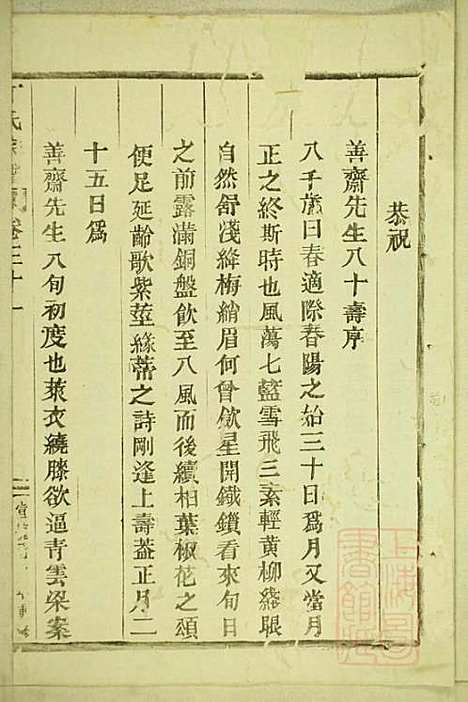 恭祝
善齋先生八十壽序
八千歲曰春適際春陽之始三十日爲月又當月
正之終斯時也風蕩七籃雪飛三素輕黃柳綫眼
自然舒淺絳梅綃眉何曾斂星開鐵鎖看來旬日
之前露滿銅盤飲至八風而後續柏葉椒花之頌
便足延齡歌紫莖綠蒂之詩剛逢上壽葢正月二
十五日爲
善齋先生八旬初度也萊衣繞膝欲逼青雲梁案
氏 卷
上海圖書館藏